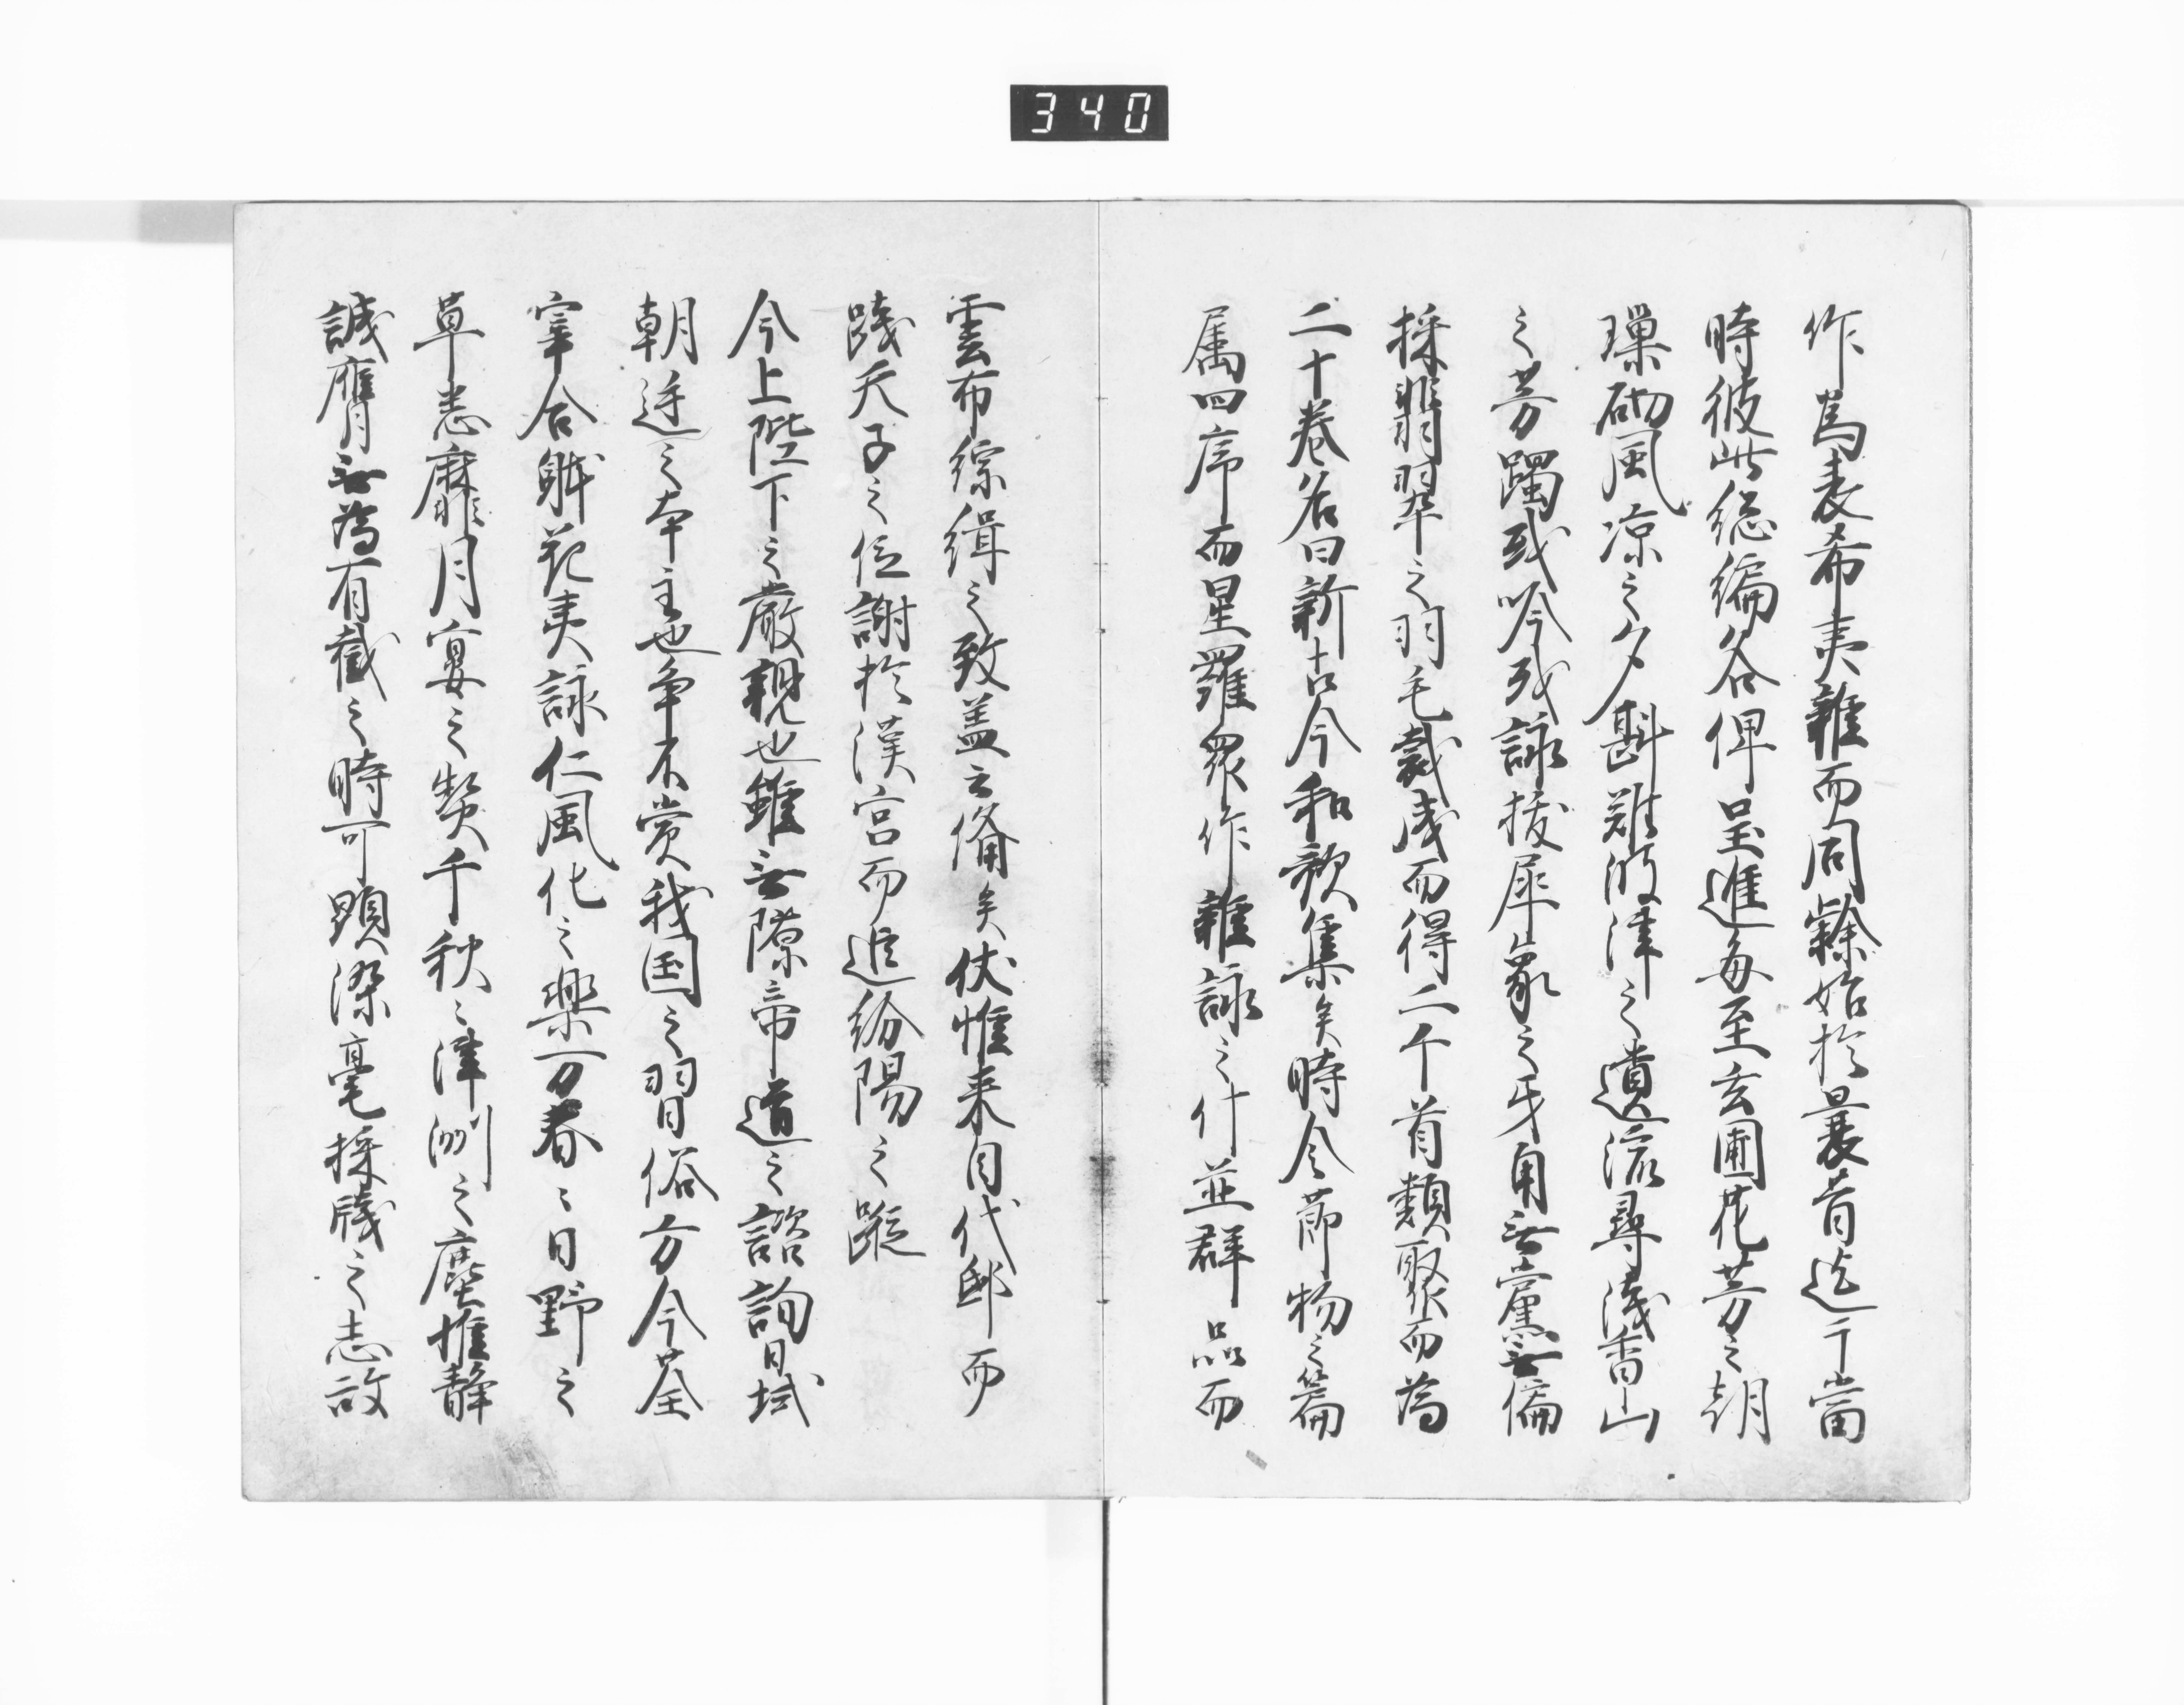 340
作焉表希夷雜而同隸始於曩昔迄于當
時彼此総編各俾呈進毎至玄圃花芳之朝
璅砌風涼之夕斟難波津之遺流尋浅香山
之芳躅或吟或詠抜犀象之牙角無党無偏
採翡翠之羽毛裁成而得二千首類聚而為
二十巻名曰新古今和歌集矣時令節物之篇
属四序而星羅衆作雜詠之什並群品而
雲布綜緝之致盖云備矣伏惟来自代邸而
践天子之位謝於漢宮而追紛陽之蹤
今上陛下之厳親也雖無隙帝道之諮詢日域
朝廷之本主也争不賞我国之習俗方今荃
宰合體華夷詠仁風化之楽万春之日野之
草悉靡月宴之契千秋之津洲之塵惟静
誠膺無為有截之時可顕染毫採牋之志故